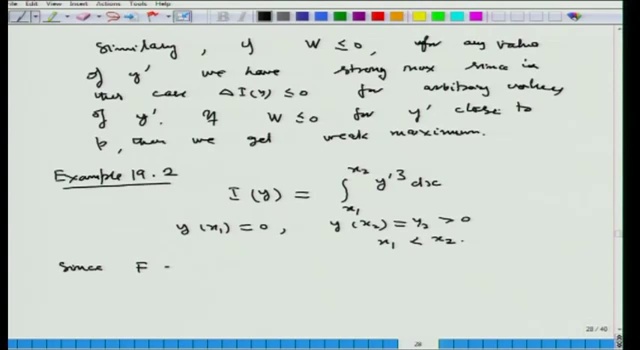 File Edit View Insert Actions Tools Help
Similarly, if W ≤ 0, for any value
of y' we have strong max since in
this case ΔI(y) ≤ 0 for arbitrary values
of y'. If W ≤ 0 for y' close to
p, then we get weak maximum.
Example 19.2
I(y) = ∫_{x₁}^{x₂} y'³ dx
y(x₁) = 0, y(x₂) = y₂ > 0
x₁ < x₂.
Since F -
28 / 40
28